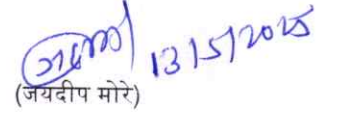 13/5/2025
(जयदीप मोरे)